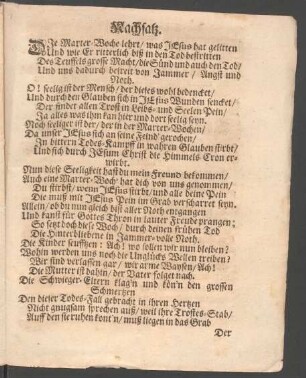 Nachsatz.
DIe Marter-Woche lehrt/ was JEsus hat gelitten
Und wie Er ritterlich biß in den Tod bestritten
Des Teuffels grosse Macht/ die Sünd und auch den Tod/
Und uns dadurch befreit von Jammer/ Angst und
Noth.
O! seelig ist der Mensch/ der dieses wohl bedencket/
Und durch den Glauben sich in JEsus Wunden sencket/
Der findet allen Trost in Leibs- und Seelen Pein/
Ja alles was ihm kan hier und dort seelig seyn.
Noch seeliger ist der/ der in der Marter-Wochen/
Da unser JEsus sich an seine Feind' gerochen/
In bittern Todes-Kampff in wahren Glauben stirbt/
Und sich durch JEsum Christ die Himmels-Cron er-
wirbt.
Nun diese Seeligkeit hast du mein Freund bekommen/
Auch eine Marter-Woch' hat dich von uns genommen/
Du stirbst/ wenn JEsus stirbt/ und alle deine Pein
Die muß mit JEsus Pein im Grab verscharret seyn.
Allein/ ob du nun gleich bist aller Noth entgangen
Und kanst für Gottes Thron in lauter Freude prangen;
So setzt doch diese Woch/ durch deinen frühen Tod
Die Hinterbliebene in Jammer-volle Noth.
Die Kinder seufftzen: Ach! wo sollen wir nun bleiben?
Wohin werden uns noch die Unglücks Wellen treiben?
Wir sind verlassen gar/ wir arme Waysen/ Ach!
Die Mutter ist dahin/ der Vater folget nach.
Die Schwieger-Eltern klag'n und kön'n den grossen
Schmertzen
Den dieser Todes-Fall gebracht in ihren Hertzen
Nicht gnugsam sprechen auß/ weil ihre Trostes-Stab/
Auff den sie ruhen kont'n/ muß liegen in das Grab
Der